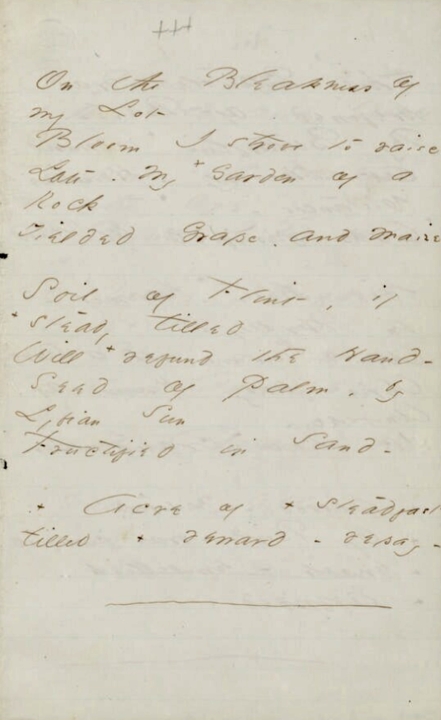 On the Bleakness of
my Lot
Bloom I strove to raise
Late - My + Garden of a
Rock
Yielded Grape - and Maize

Soil of Flint, if
+ steady tilled
Will + refund the Hand -
Seed of Palm, by
Lybian Sun
Fructified in Sand -

+ Acre of + steadfast
tilled + reward - repay -